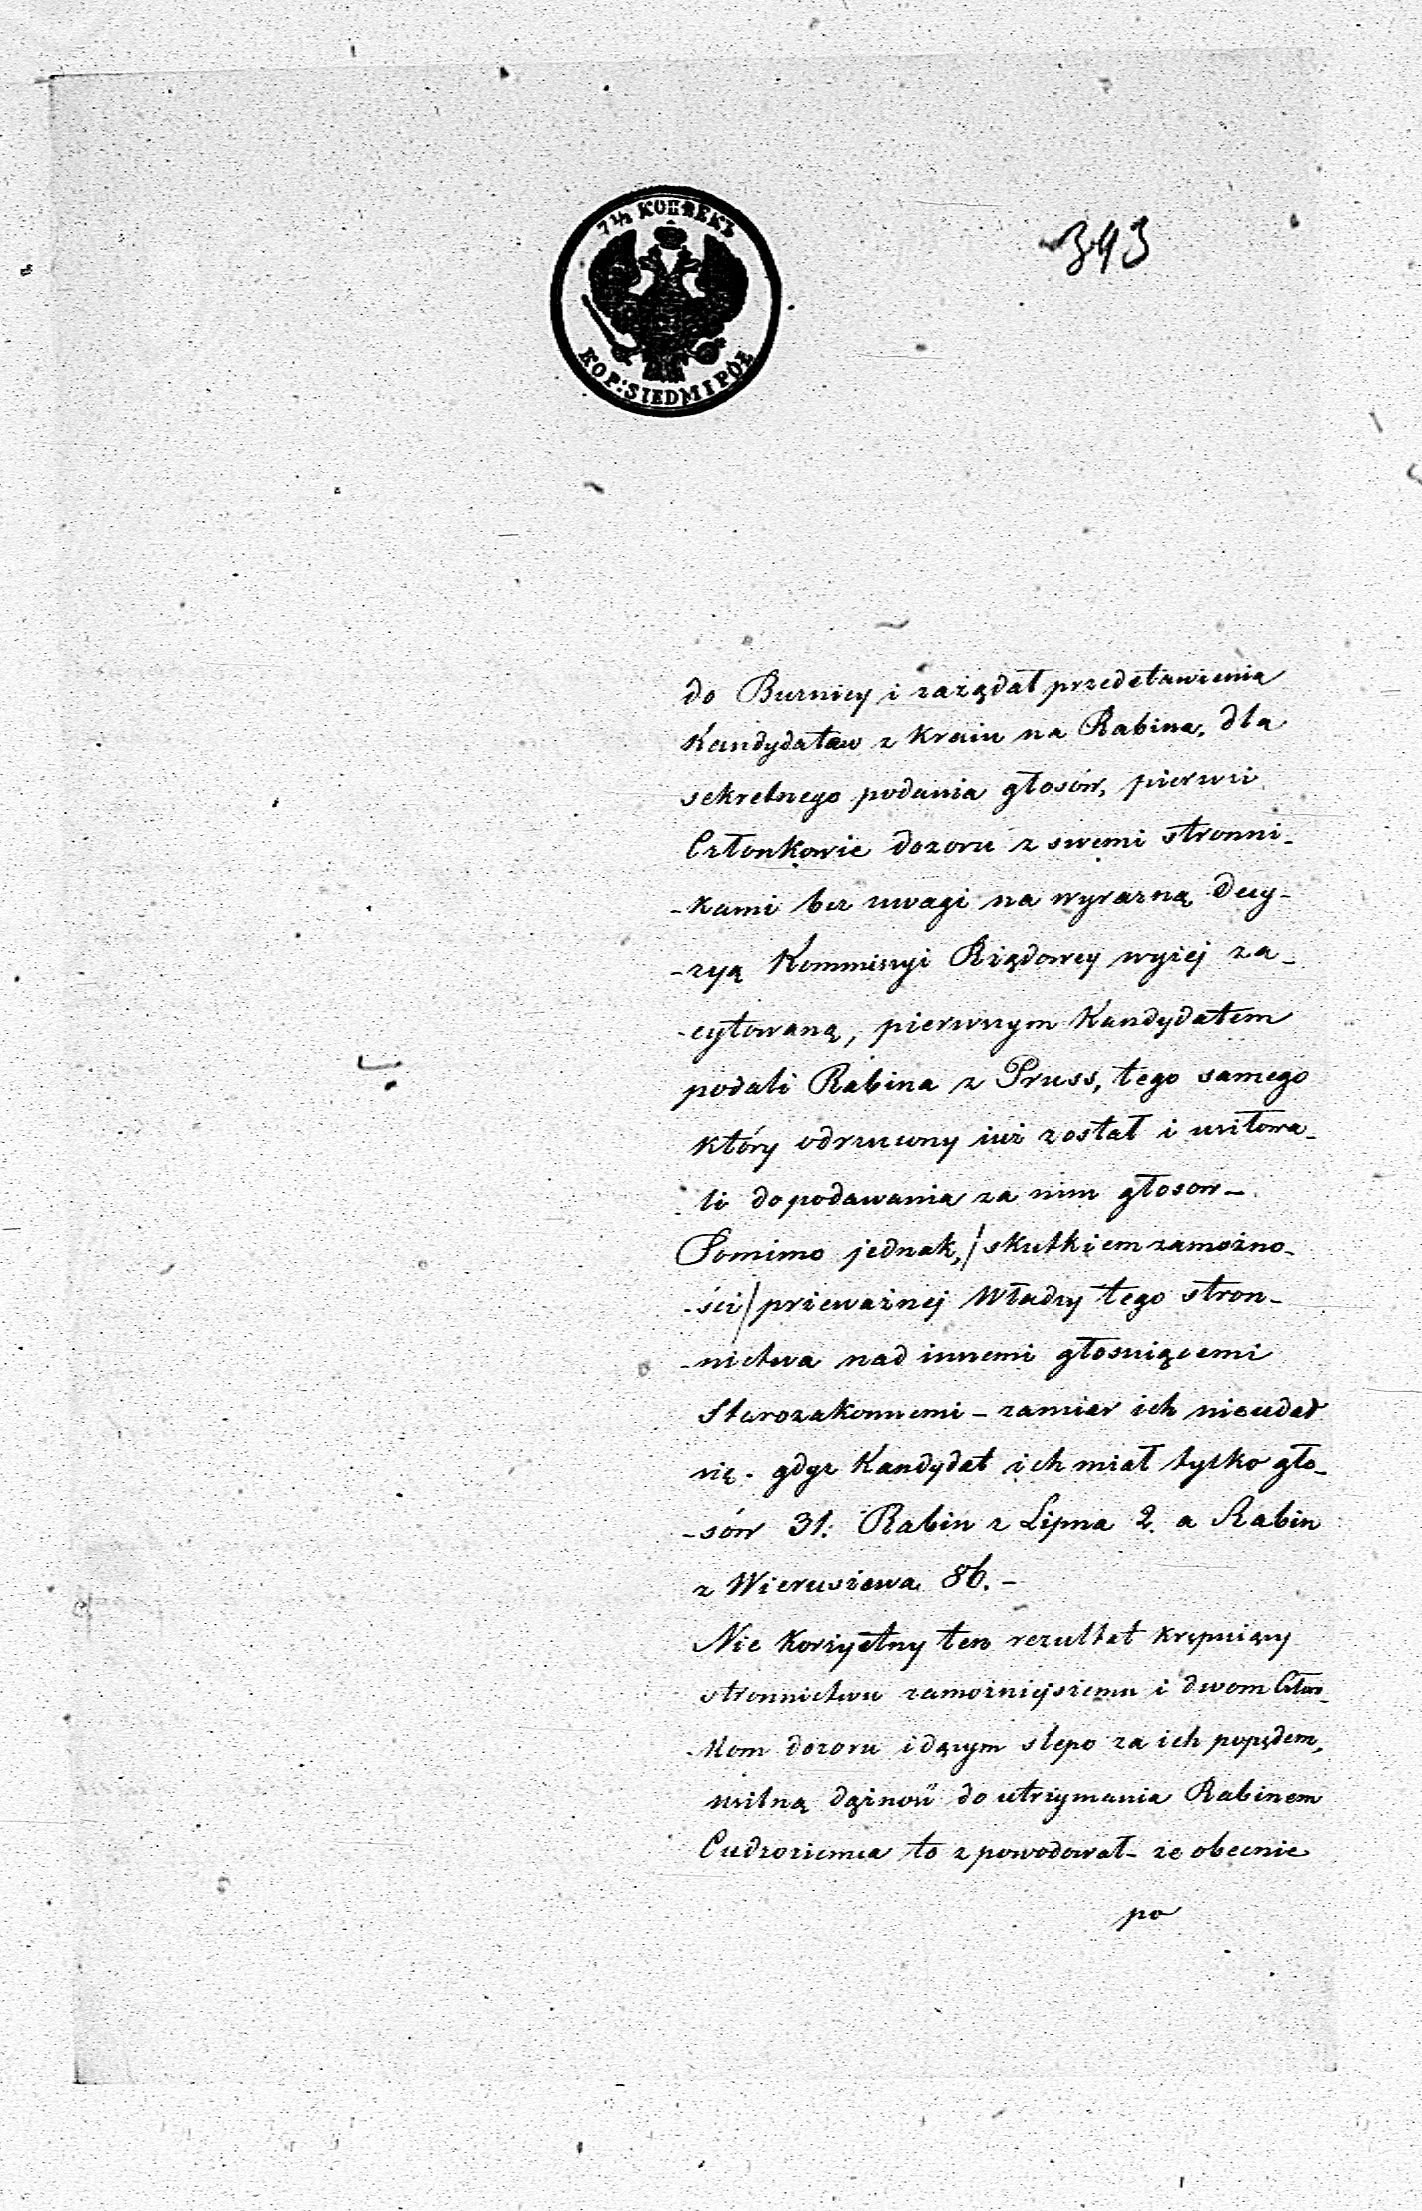 7½ КОПѢЕКЪ
KOP: SIEDM I PÓŁ
393
do Buznicy i zażądał przedstawienia
Kandydatow z Kraiu na Rabina, dla
sekretnego podania głosów, pierwsi
Członkowie dozoru z swemi stronni-
-kami bez uwagi na wyrazną decy-
-zyą Kommissyi Rządowey wyżej za-
-cytowaną, pierwszym Kandydatem
podali Rabina z Pruss, tego samego
który odrzucony iuż został i usiłowa-
li do podawania za nim głosow-
Pomimo jednak, /skutkiem zamożno-
-ści/ przeważnej Władzy tego stron-
-nictwa nad innemi głosuiącemi
Starozakonnemi - zamiar ich nieudał
się. gdyz Kandydat ich miał tylko gło-
-sów 31. Rabin z Lipna 2. a Rabin
z Wieruszewa 86.-
Nie Korzystny ten rezultat krępuiący
stronnictwu zamożniejszemu i dwom Człon-
kom dozoru idącym slepo za ich popędem,
usilną dążność do utrzymania Rabinem
Cudzoziemca to zpowodował- że obecnie
po